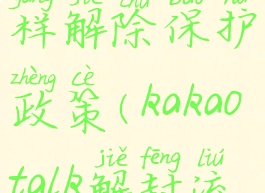 样解除保护
zhèng cè
政策(kakao
jiě fēng liú
talk解封流